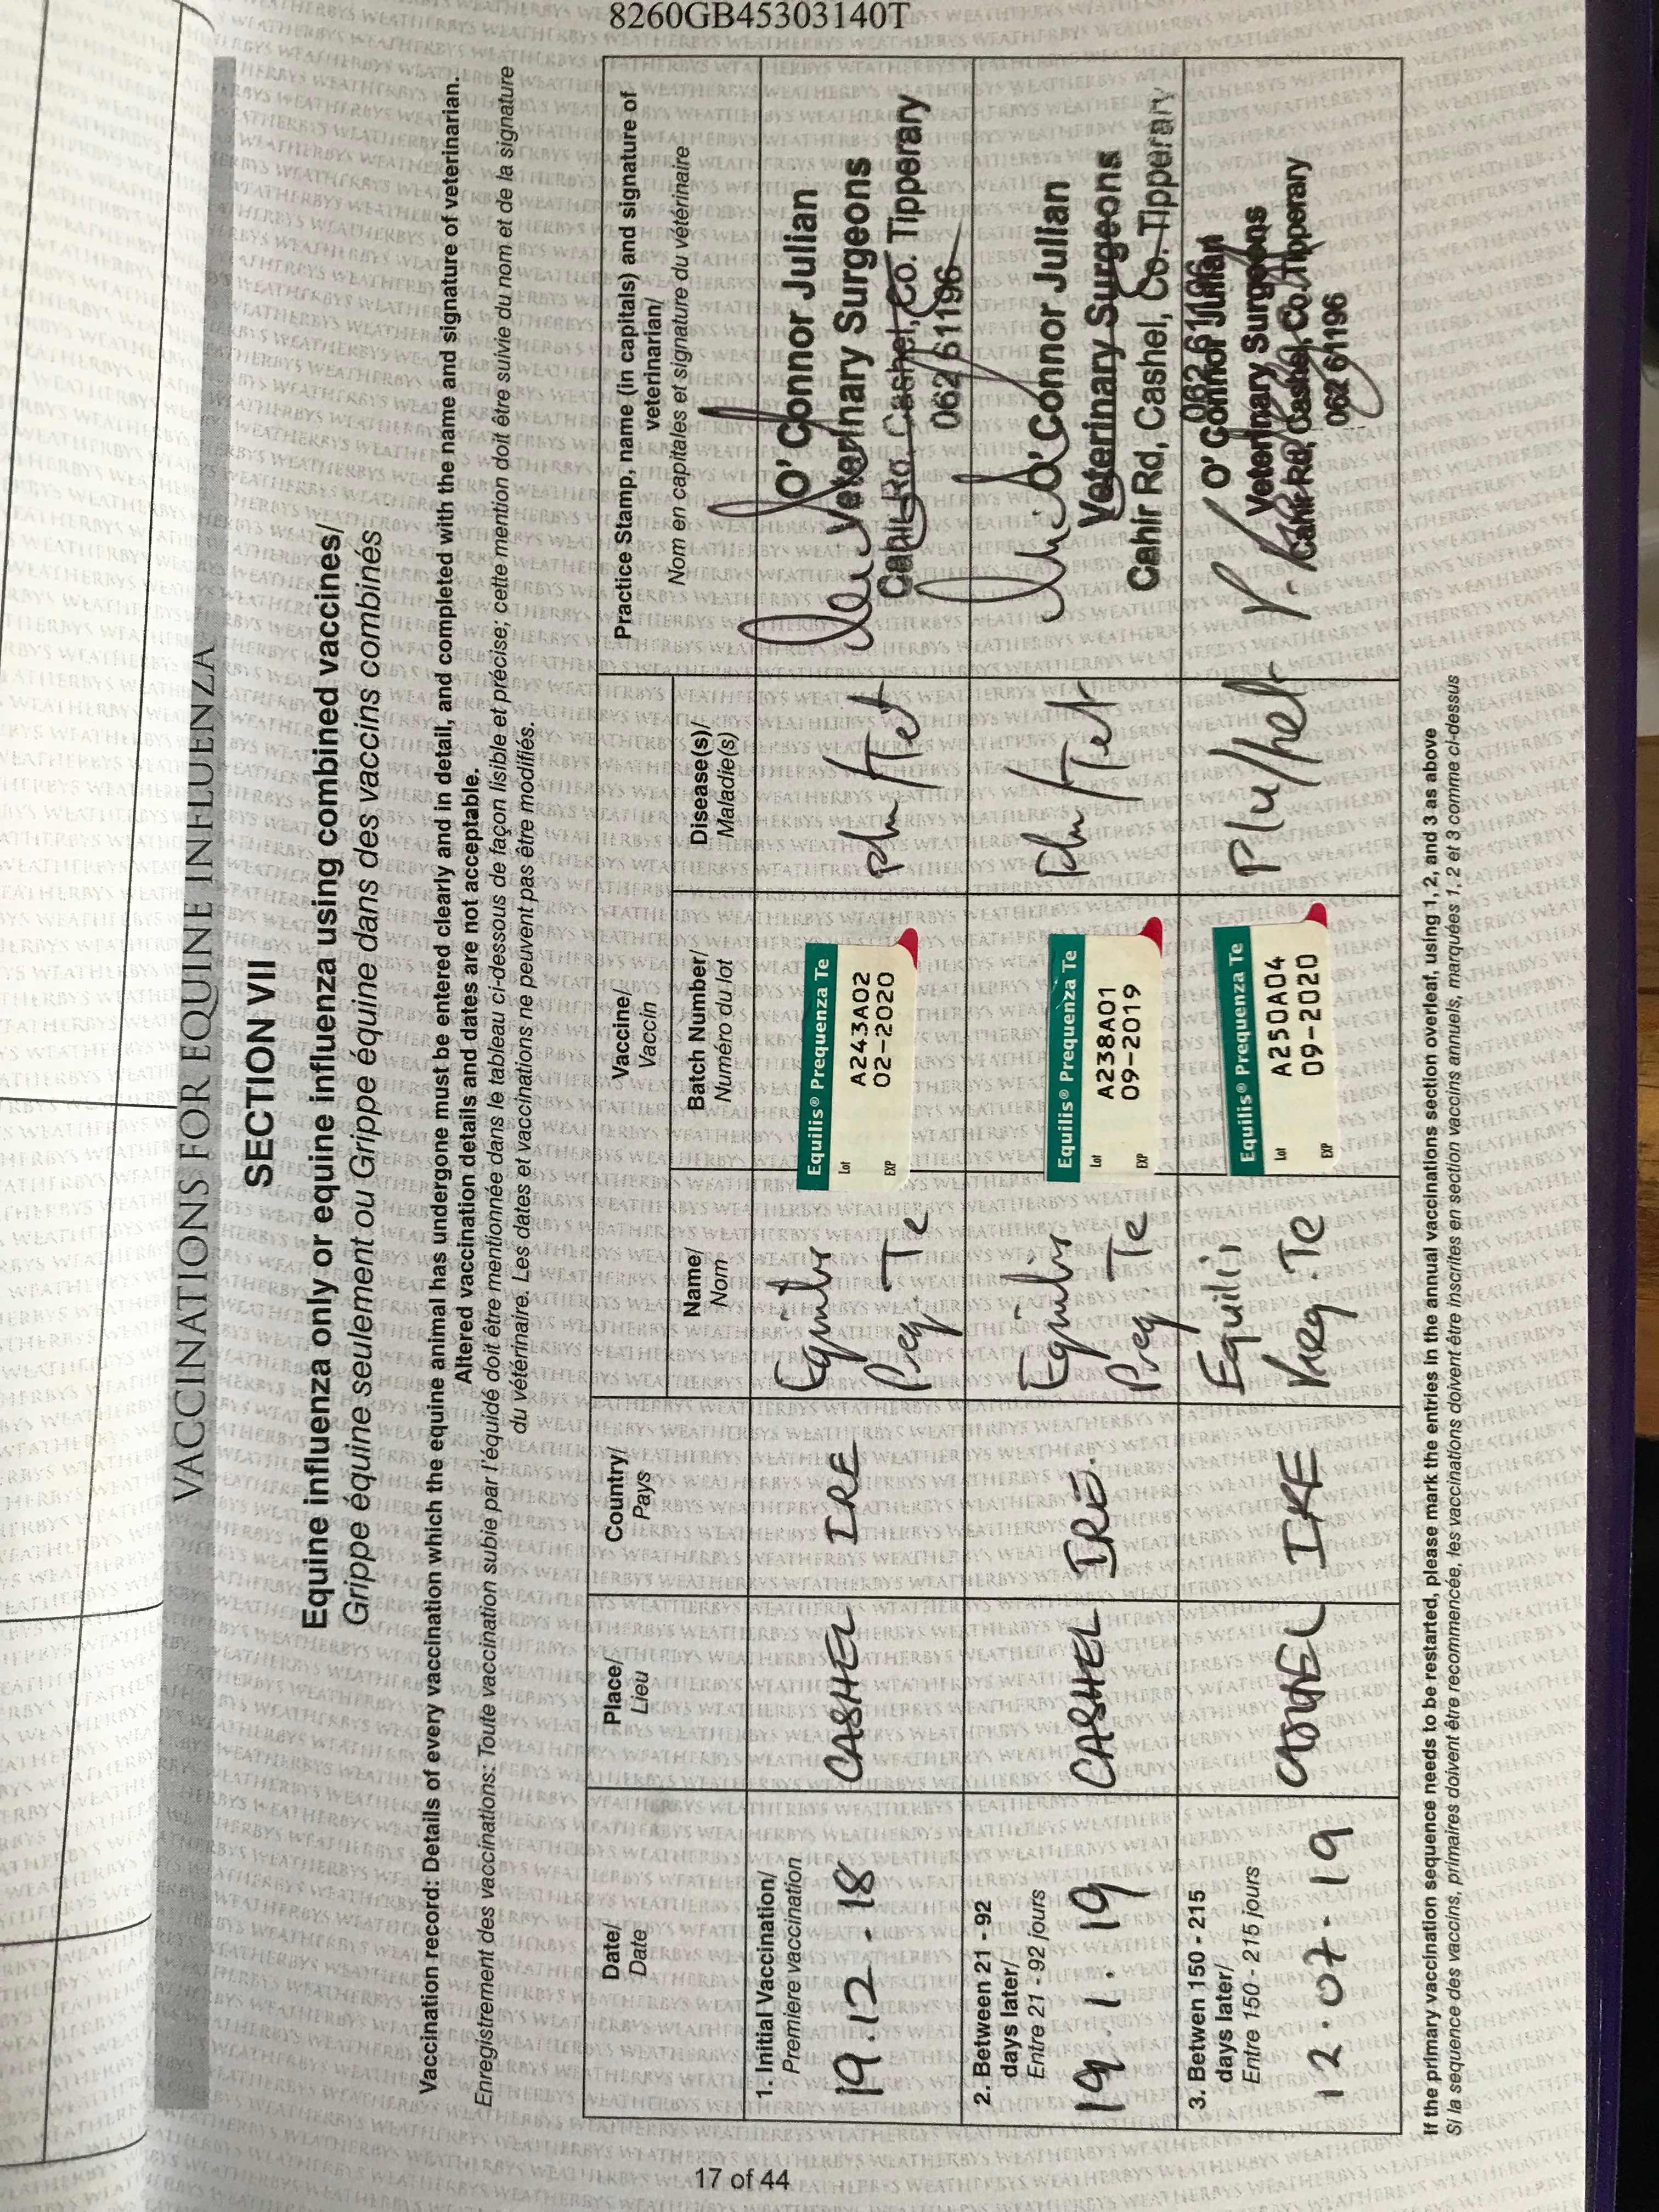 8260GB45303140T
VACCINATIONS FOR EQUINE INFLUENZA
SECTION VII
Equine influenza only or equine influenza using combined vaccines/
Grippe équine seulement ou Grippe équine dans des vaccins combinés
Vaccination record: Details of every vaccination which the equine animal has undergone must be entered clearly and in detail, and completed with the name and signature of veterinarian.
Altered vaccination details and dates are not acceptable.
Enregistrement des vaccinations: Toute vaccination subie par l'équidé doit être mentionnée dans le tableau ci-dessous de façon lisible et précise; cette mention doit être suivie du nom et de la signature
du vétérinaire. Les dates et vaccinations ne peuvent pas être modifiés.
Date/
Date
Place/
Lieu
Country/
Pays
Vaccine/
Vaccin
Name/
Nom
Batch Number/
Numéro du lot
Disease(s)/
Maladie(s)
Practice Stamp, name (in capitals) and signature of
veterinarian/
Nom en capitales et signature du vétérinaire
1. Initial Vaccination/
Premiere vaccination
19.12.18
CASHEL
IRE
Equilis
Preq. Te
Equilis® Prequenza Te
Lot A243A02
EXP 02-2020
Flu/Tet
O' Connor Julian
Veterinary Surgeons
Cahir Rd, Cashel, Co. Tipperary
062 61196
2. Between 21 - 92
days later/
Entre 21 - 92 jours
19.1.19
CASHEL
IRE.
Equilis
Preq. Te
Equilis® Prequenza Te
Lot A238A01
EXP 09-2019
Flu/Tet
O' Connor Julian
Veterinary Surgeons
Cahir Rd, Cashel, Co. Tipperary
062 61196
3. Between 150 - 215
days later/
Entre 150 - 215 jours
12.07.19
CASHEL
IRE
Equilis
Preq. Te
Equilis® Prequenza Te
Lot A250A04
EXP 09-2020
O' Connor Julian
Veterinary Surgeons
Cahir Rd, Cashel, Co. Tipperary
062 61196
If the primary vaccination sequence needs to be restarted, please mark the entries in the annual vaccinations section overleaf, using 1, 2, and 3 as above
Si la sequence des vaccins, primaires doivent être recommencée, les vaccinations doivent être inscrites en section vaccins annuels, marquées 1, 2 et 3 comme ci-dessus
17 of 44